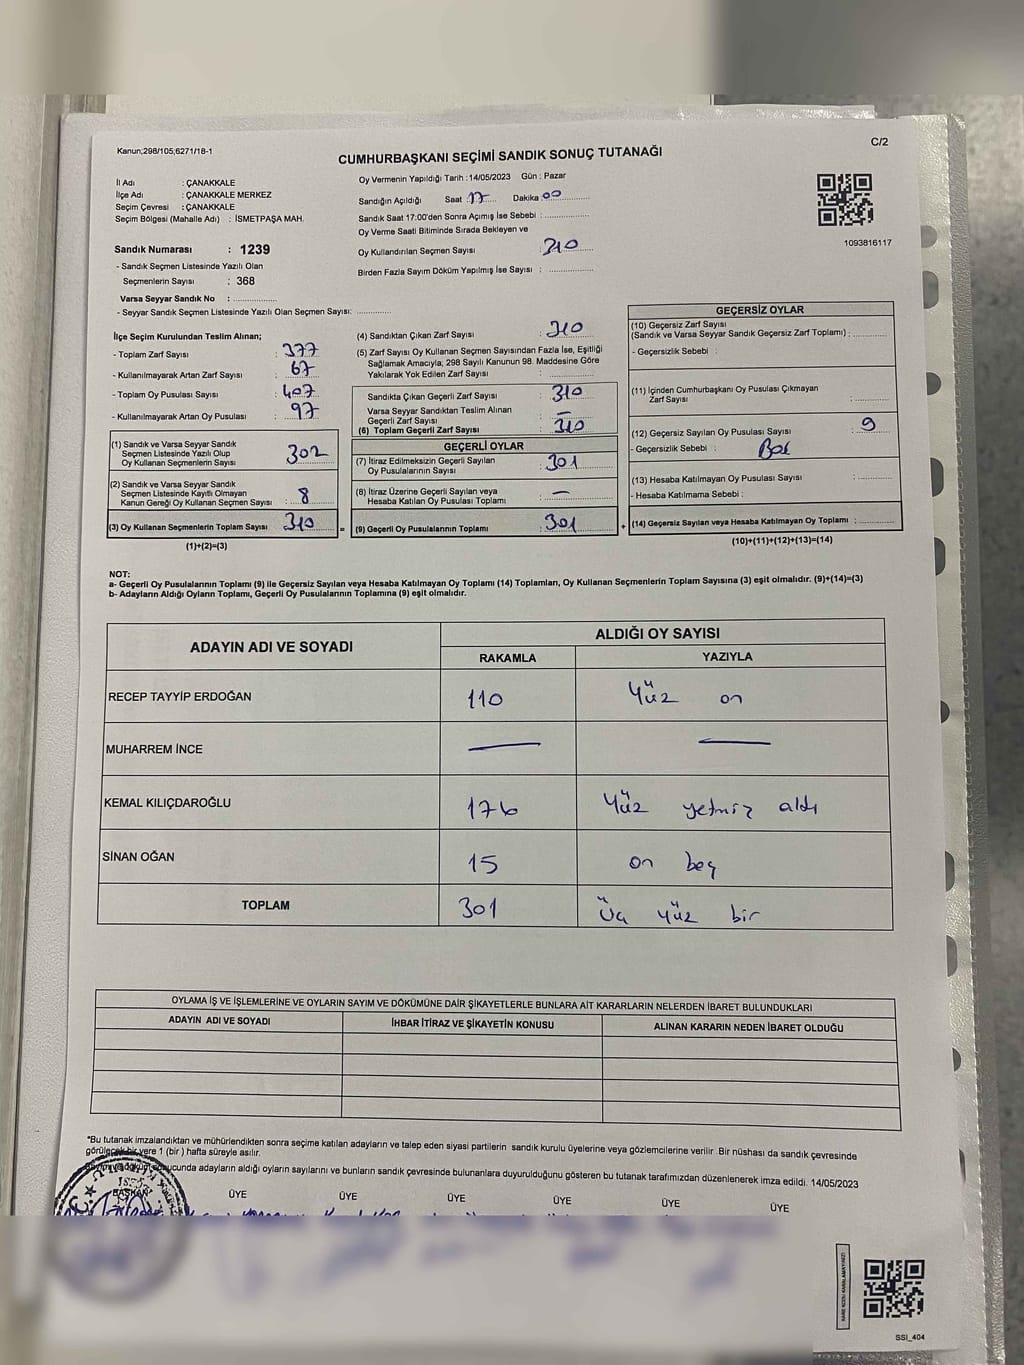 Kanun;298/105,6271/18-1
C/2
CUMHURBAŞKANI SEÇİMİ SANDIK SONUÇ TUTANAĞI
İl Adı : ÇANAKKALE
İlçe Adı : ÇANAKKALE MERKEZ
Seçim Çevresi : ÇANAKKALE
Seçim Bölgesi (Mahalle Adı) : İSMETPAŞA MAH.
Sandık Numarası : 1239
- Sandık Seçmen Listesinde Yazılı Olan
Seçmenlerin Sayısı : 368
Varsa Seyyar Sandık No :
- Seyyar Sandık Seçmen Listesinde Yazılı Olan Seçmen Sayısı:
Oy Vermenin Yapıldığı Tarih : 14/05/2023 Gün : Pazar
Sandığın Açıldığı Saat : 17 Dakika : 00
Sandık Saat 17:00'den Sonra Açımış İse Sebebi :
Oy Verme Saati Bitiminde Sırada Bekleyen ve
Oy Kullandırılan Seçmen Sayısı : 310
Birden Fazla Sayım Döküm Yapılmış İse Sayısı :
1093816117
İlçe Seçim Kurulundan Teslim Alınan;
- Toplam Zarf Sayısı : 377
- Kullanılmayarak Artan Zarf Sayısı : 67
- Toplam Oy Pusulası Sayısı : 407
- Kullanılmayarak Artan Oy Pusulası : 97
(1) Sandık ve Varsa Seyyar Sandık
Seçmen Listesinde Yazılı Olup
Oy Kullanan Seçmenlerin Sayısı : 302
(2) Sandık ve Varsa Seyyar Sandık
Seçmen Listesinde Kayıtlı Olmayan
Kanun Gereği Oy Kullanan Seçmen Sayısı : 8
(3) Oy Kullanan Seçmenlerin Toplam Sayısı : 310 =
(1)+(2)=(3)
(4) Sandıktan Çıkan Zarf Sayısı : 310
(5) Zarf Sayısı Oy Kullanan Seçmen Sayısından Fazla İse, Eşitliği
Sağlamak Amacıyla, 298 Sayılı Kanunun 98. Maddesine Göre
Yakılarak Yok Edilen Zarf Sayısı :
Sandıkta Çıkan Geçerli Zarf Sayısı : 310
Varsa Seyyar Sandıktan Teslim Alınan
Geçerli Zarf Sayısı : —
(6) Toplam Geçerli Zarf Sayısı : 310
GEÇERLİ OYLAR
(7) İtiraz Edilmeksizin Geçerli Sayılan
Oy Pusulalarının Sayısı : 301
(8) İtiraz Üzerine Geçerli Sayılan veya
Hesaba Katılan Oy Pusulası Toplamı : —
(9) Geçerli Oy Pusulalarının Toplamı : 301 +
GEÇERSİZ OYLAR
(10) Geçersiz Zarf Sayısı
(Sandık ve Varsa Seyyar Sandık Geçersiz Zarf Toplamı) :
- Geçersizlik Sebebi :
(11) İçinden Cumhurbaşkanı Oy Pusulası Çıkmayan
Zarf Sayısı :
(12) Geçersiz Sayılan Oy Pusulası Sayısı : 9
- Geçersizlik Sebebi :
(13) Hesaba Katılmayan Oy Pusulası Sayısı :
- Hesaba Katılmama Sebebi :
(14) Geçersiz Sayılan veya Hesaba Katılmayan Oy Toplamı :
(10)+(11)+(12)+(13)=(14)
NOT:
a- Geçerli Oy Pusulalarının Toplamı (9) ile Geçersiz Sayılan veya Hesaba Katılmayan Oy Toplamı (14) Toplamları, Oy Kullanan Seçmenlerin Toplam Sayısına (3) eşit olmalıdır. (9)+(14)=(3)
b- Adayların Aldığı Oyların Toplamı, Geçerli Oy Pusulalarının Toplamına (9) eşit olmalıdır.
ADAYIN ADI VE SOYADI ALDIĞI OY SAYISI
RAKAMLA YAZIYLA
RECEP TAYYİP ERDOĞAN 110 Yüz on
MUHARREM İNCE — —
KEMAL KILIÇDAROĞLU 176 Yüz yetmiz aldı
SİNAN OĞAN 15 on beş
TOPLAM 301 Üç yüz bir
OYLAMA İŞ VE İŞLEMLERİNE VE OYLARIN SAYIM VE DÖKÜMÜNE DAİR ŞİKAYETLERLE BUNLARA AİT KARARLARIN NELERDEN İBARET BULUNDUKLARI
ADAYIN ADI VE SOYADI İHBAR İTİRAZ VE ŞİKAYETİN KONUSU ALINAN KARARIN NEDEN İBARET OLDUĞU
*Bu tutanak imzalandıktan ve mühürlendikten sonra seçime katılan adayların ve talep eden siyasi partilerin sandık kurulu üyelerine veya gözlemcilerine verilir .Bir nüshası da sandık çevresinde
görülecek bir yere 1 (bir ) hafta süreyle asılır.
Sayım ve döküm sonucunda adayların aldığı oyların sayılarını ve bunların sandık çevresinde bulunanlara duyurulduğunu gösteren bu tutanak tarafımızdan düzenlenerek imza edildi. 14/05/2023
BAŞKAN ÜYE ÜYE ÜYE ÜYE ÜYE ÜYE
SSI_404